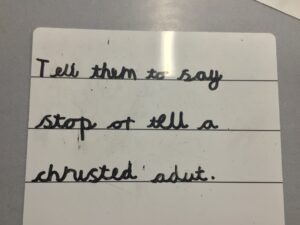 Tell them to say
stop or tell a
chrusted adut.